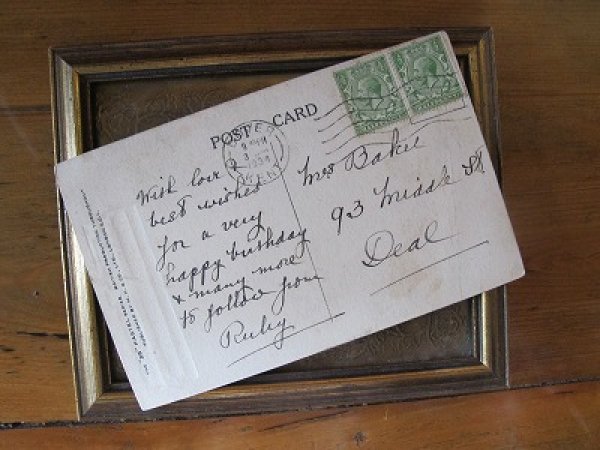 POST CARD
With love &
best wishes
for a very
happy birthday
& many more
to follow from
Ruby
Mrs Baker
93 Middle St
Deal